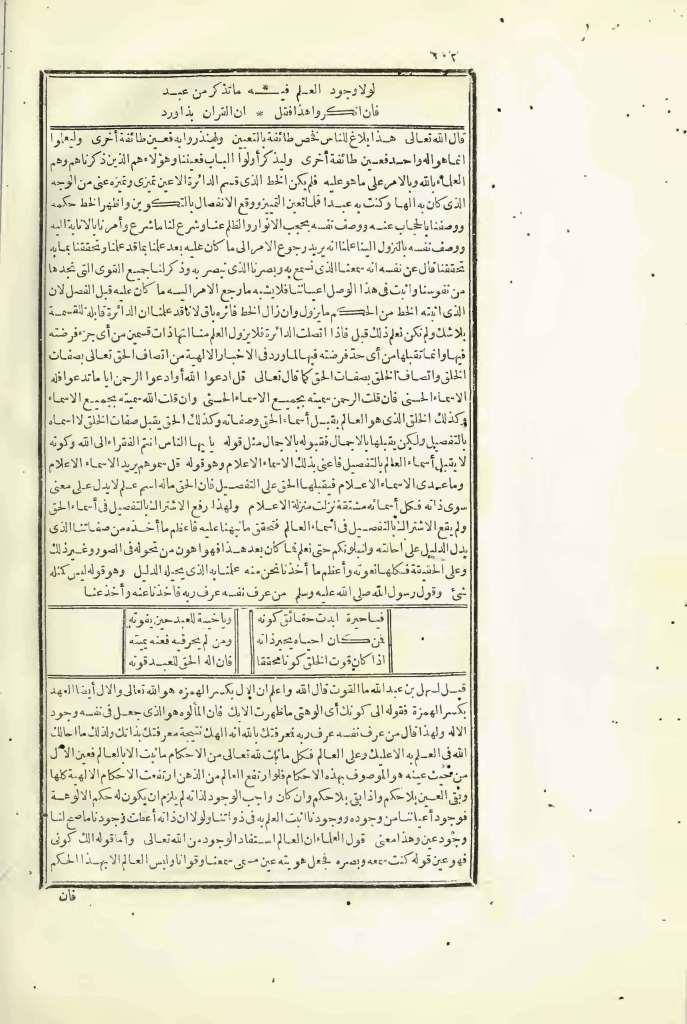 ٦٠٢
لولا وجود العلم فيه * ما تذكر من عبد
فان أنكروا هذا فقل * ان القرآن بذا ورد
قال الله تعالى هذا بلاغ للناس نخص طائفة بالتعيين ولينذروا به فعين طائفة أخرى وليعلوا
انما هو اله واحد فعين طائفة أخرى وليذكر أولوا الباب فعيننا وهؤلاء هم الذين ذكرناهم وهم
العلماء بالله وبالامر على ما هو عليه فلم يكن الخط الذى قسم الدائرة الاعين تميزى وتميزه عنى من الوجه
الذى كان به الها وكنت به عبدا فلما تعين التمييز ووقع الانفصال بالتكوين وأظهر الخط حكمه
ووصفنا بالحجاب عنه ووصف نفسه بحجب الانوار والظلم عنا وشرع لنا ما شرع وأمرنا بالانابة اليه
ووصف نفسه بالنزول الينا علمنا انه يريد رجوع الامر الى ما كان عليه بعد علمنا بما قد علمنا وتحققنا بما به
تحققنا قال عن نفسه انه سمعنا الذى نسمع به وبصرنا الذى نبصر به وذكر لنا جميع القوى التى نجدها
من نفوسنا واثبت فى هذا الوصل اعياننا فلا يشبه ما رجع الامر اليه ما كان عليه قبل الفصل لان
الذى اثبته الخط من الحكم ما يزول وان زال الخط فاثره باق لانا قد علمنا ان الدائرة قابلة للقسمة
بلا شك ولم نكن نعلم ذلك قبل فاذا اتصلت الدائرة فلا يزول العلم منا انها ذات قسمين من أى جزء فرضته
فيها وانما تقبلها من أى حد فرضته فيها لما ورد فى الاخبار الالهية من اتصاف الحق تعالى بصفات
الخلق واتصاف الخلق بصفات الحق كما قال تعالى قل ادعوا الله أو ادعوا الرحمن ايا ما تدعوا فله
الاسماء الحسنى فان قلت الرحمن سميته بجميع الاسماء الحسنى وان قلت الله سميته بجميع الاسماء
وكذلك الخلق الذى هو العالم يقبل أسماء الحق وصفاته وكذلك الحق يقبل صفات الخلق لا اسماه
بالتفصيل ولكن يقبلها بالاجمال فقبوله بالاجمال مثل قوله يا يها الناس انتم الفقراء الى الله وكونه
لا يقبل أسماء العالم بالتفصيل فاعنى بذلك الاسماء الاعلام وهو قوله قل سموهم يريد الاسماء الاعلام
وما عدى الاسماء الاعلام فيقبلها الحق على التفصيل فان الحق ماله اسم علم لا يدل على معنى
سوى ذاته فكل أسمائه مشتقة نزلت منزلة الاعلام ولهذا رفع الاشتراك بالتفصيل فى أسماء الحق
ولم يقع الاشتراك بالتفصيل فى أسماء العالم فتحقق ما نبهنا عليه فاعظم ما أخذه من صفاتنا الذى
يدل الدليل على احالته ولنبلونكم حتى نعلم فما كان بعد هذا فهو اهون من تحوله فى الصور وغير ذلك
وعلى الحقيقة فكلها نعوته وأعظم ما أخذنا نحن منه علمنا به الذى يحيله الدليل وهو قوله ليس كمثله
شئ وقول رسول الله صلى الله عليه وسلم من عرف نفسه عرف ربه فاخذنا عنه وأخذ عنا
فيا حيرة ابدت حقائق كونه ويا خيبة للعبد حين يفوته
فمن كان احياه يحيز ذاته ومن لم يحز فيه فعنه يميته
اذا كان قوت الخلق كونا محققا فان اله الحق للعبد قوته
قيل لسهل بن عبد الله ما القوت قال الله واعلم ان الال بكسر الهمزه هو الله تعالى والال أيضا العهد
بكسر الهمزة فقوله الى كونك أى الوهتى ما ظهرت الا بك فان المألوه هو الذى جعل فى نفسه وجود
الاله ولهذا قال من عرف نفسه عرف ربه فعرفتك بالله انه الهك نتيجة معرفتك بذاتك ولذلك ما احالك
الله فى العلم به الا عليك وعلى العالم فكل ما ثبت لله تعالى من الاحكام ما ثبت الا بالعالم فعين الال
من حيث عينه هو الموصوف بهذه الاحكام فلو ارتفع العالم من الذهن ارتفعت الاحكام الالهية كلها
وبقى العين بلا حكم واذا بقى بلا حكم وان كان واجب الوجود لذاته لم يلزم ان يكون له حكم الالوهة
فوجود أعياننا من وجوده ووجودنا اثبت العلم به فى ذواتنا ولولا ان ذاته أعطت وجودنا ما صح لنا
وجود عين وهذا معنى قول العلماء ان العالم استفاد الوجود من الله تعالى وأما قوله الك كونى
فهو عين قوله كنت سمعه وبصره فجعل هويته عين مسمى سمعنا وقوانا وليس العالم الا بهذا الحكم
فان